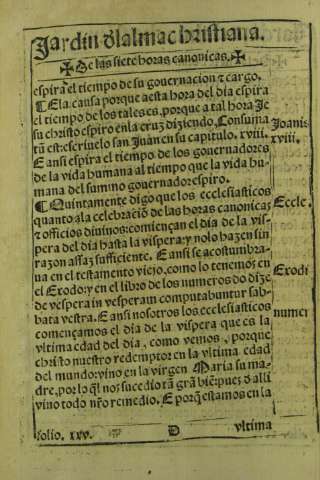 Jardin dl alma christiana.
✠ De las siete horas canonicas. ✠
espira el tiempo de su gouernacion & cargo.
¶ E la causa porque a esta hora del dia espira
el tiempo de los tales es, porque a tal hora Je
su christo espiro en la cruz diziendo, Consuma
tũ est: escriuelo san Juan en su capitulo. xviii.
Joanis
xviii.
E ansi espira el tiempo de los gouernadores
de la vida humana al tiempo que la vida hu-
mana del summo gouernador espiro.
¶ Quintamente digo que los ecclesiasticos
quanto ala celebraciõ de las horas canonicas
Eccle.
& officios diuinos: comiençan el dia de la vis-
pera del dia hasta la vispera: y no lo hazen sin
razon assaz sufficiente. E ansi se acostumbra-
ua en el testamento viejo, como lo tenemos en
el Exodo: y en el libro de los numeros do dize
Exodi
de vespera in vesperam computabuntur sab-
bata vestra. E ansi nosotros los ecclesiasticos
numer
començamos el dia de la vispera que es la
vltima edad del dia, como vemos, porque
christo nuestro redemptor en la vltima edad
del mundo: vino en la virgen Maria su ma-
dre, por lo q̃l nos sucedio tã grã biẽ: pues d alli
vino todo nr̃o remedio. E porq̃ estamos en la
folio. xxv.
D
vltima